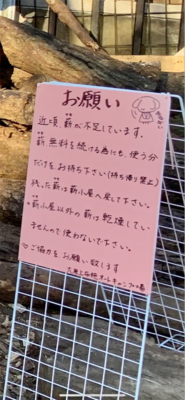 お願い
近頃 薪が不足しています。
薪 無料を続ける為にも、使う分
だけをお持ち下さい(持ち帰り禁止)
残った薪は薪小屋へ戻して下さい。
薪小屋以外の薪は乾燥してい
ませんので使わないで下さい。
♡ご協力をお願い致します
オートキャンプの森